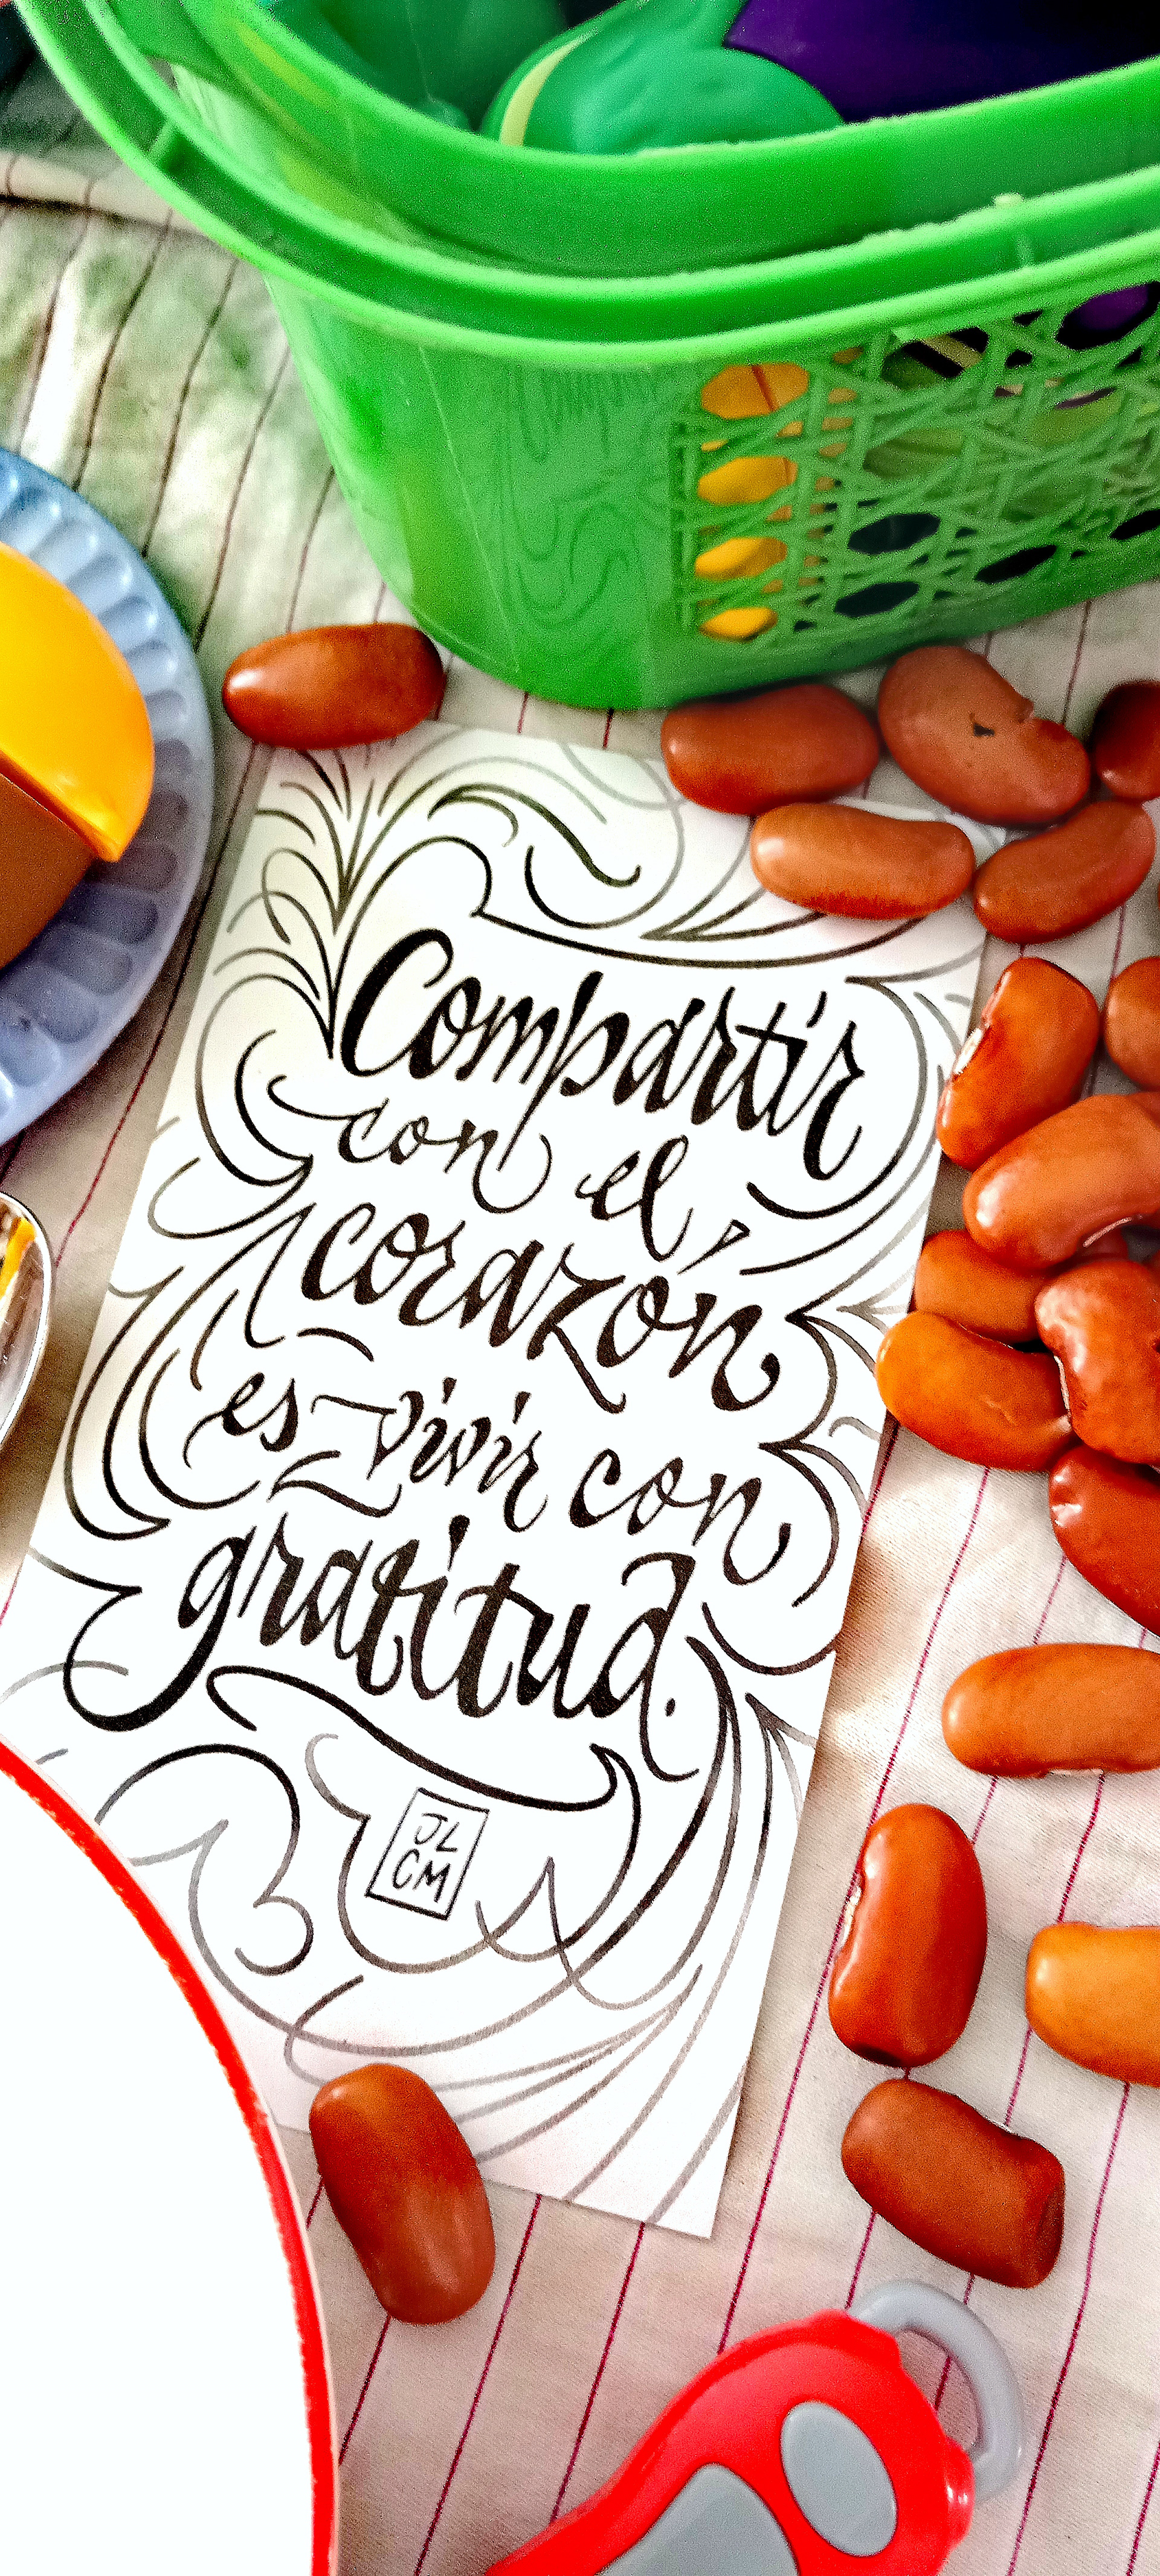 Compartir
con el
corazón
es vivir con
gratitud.
JL
CM